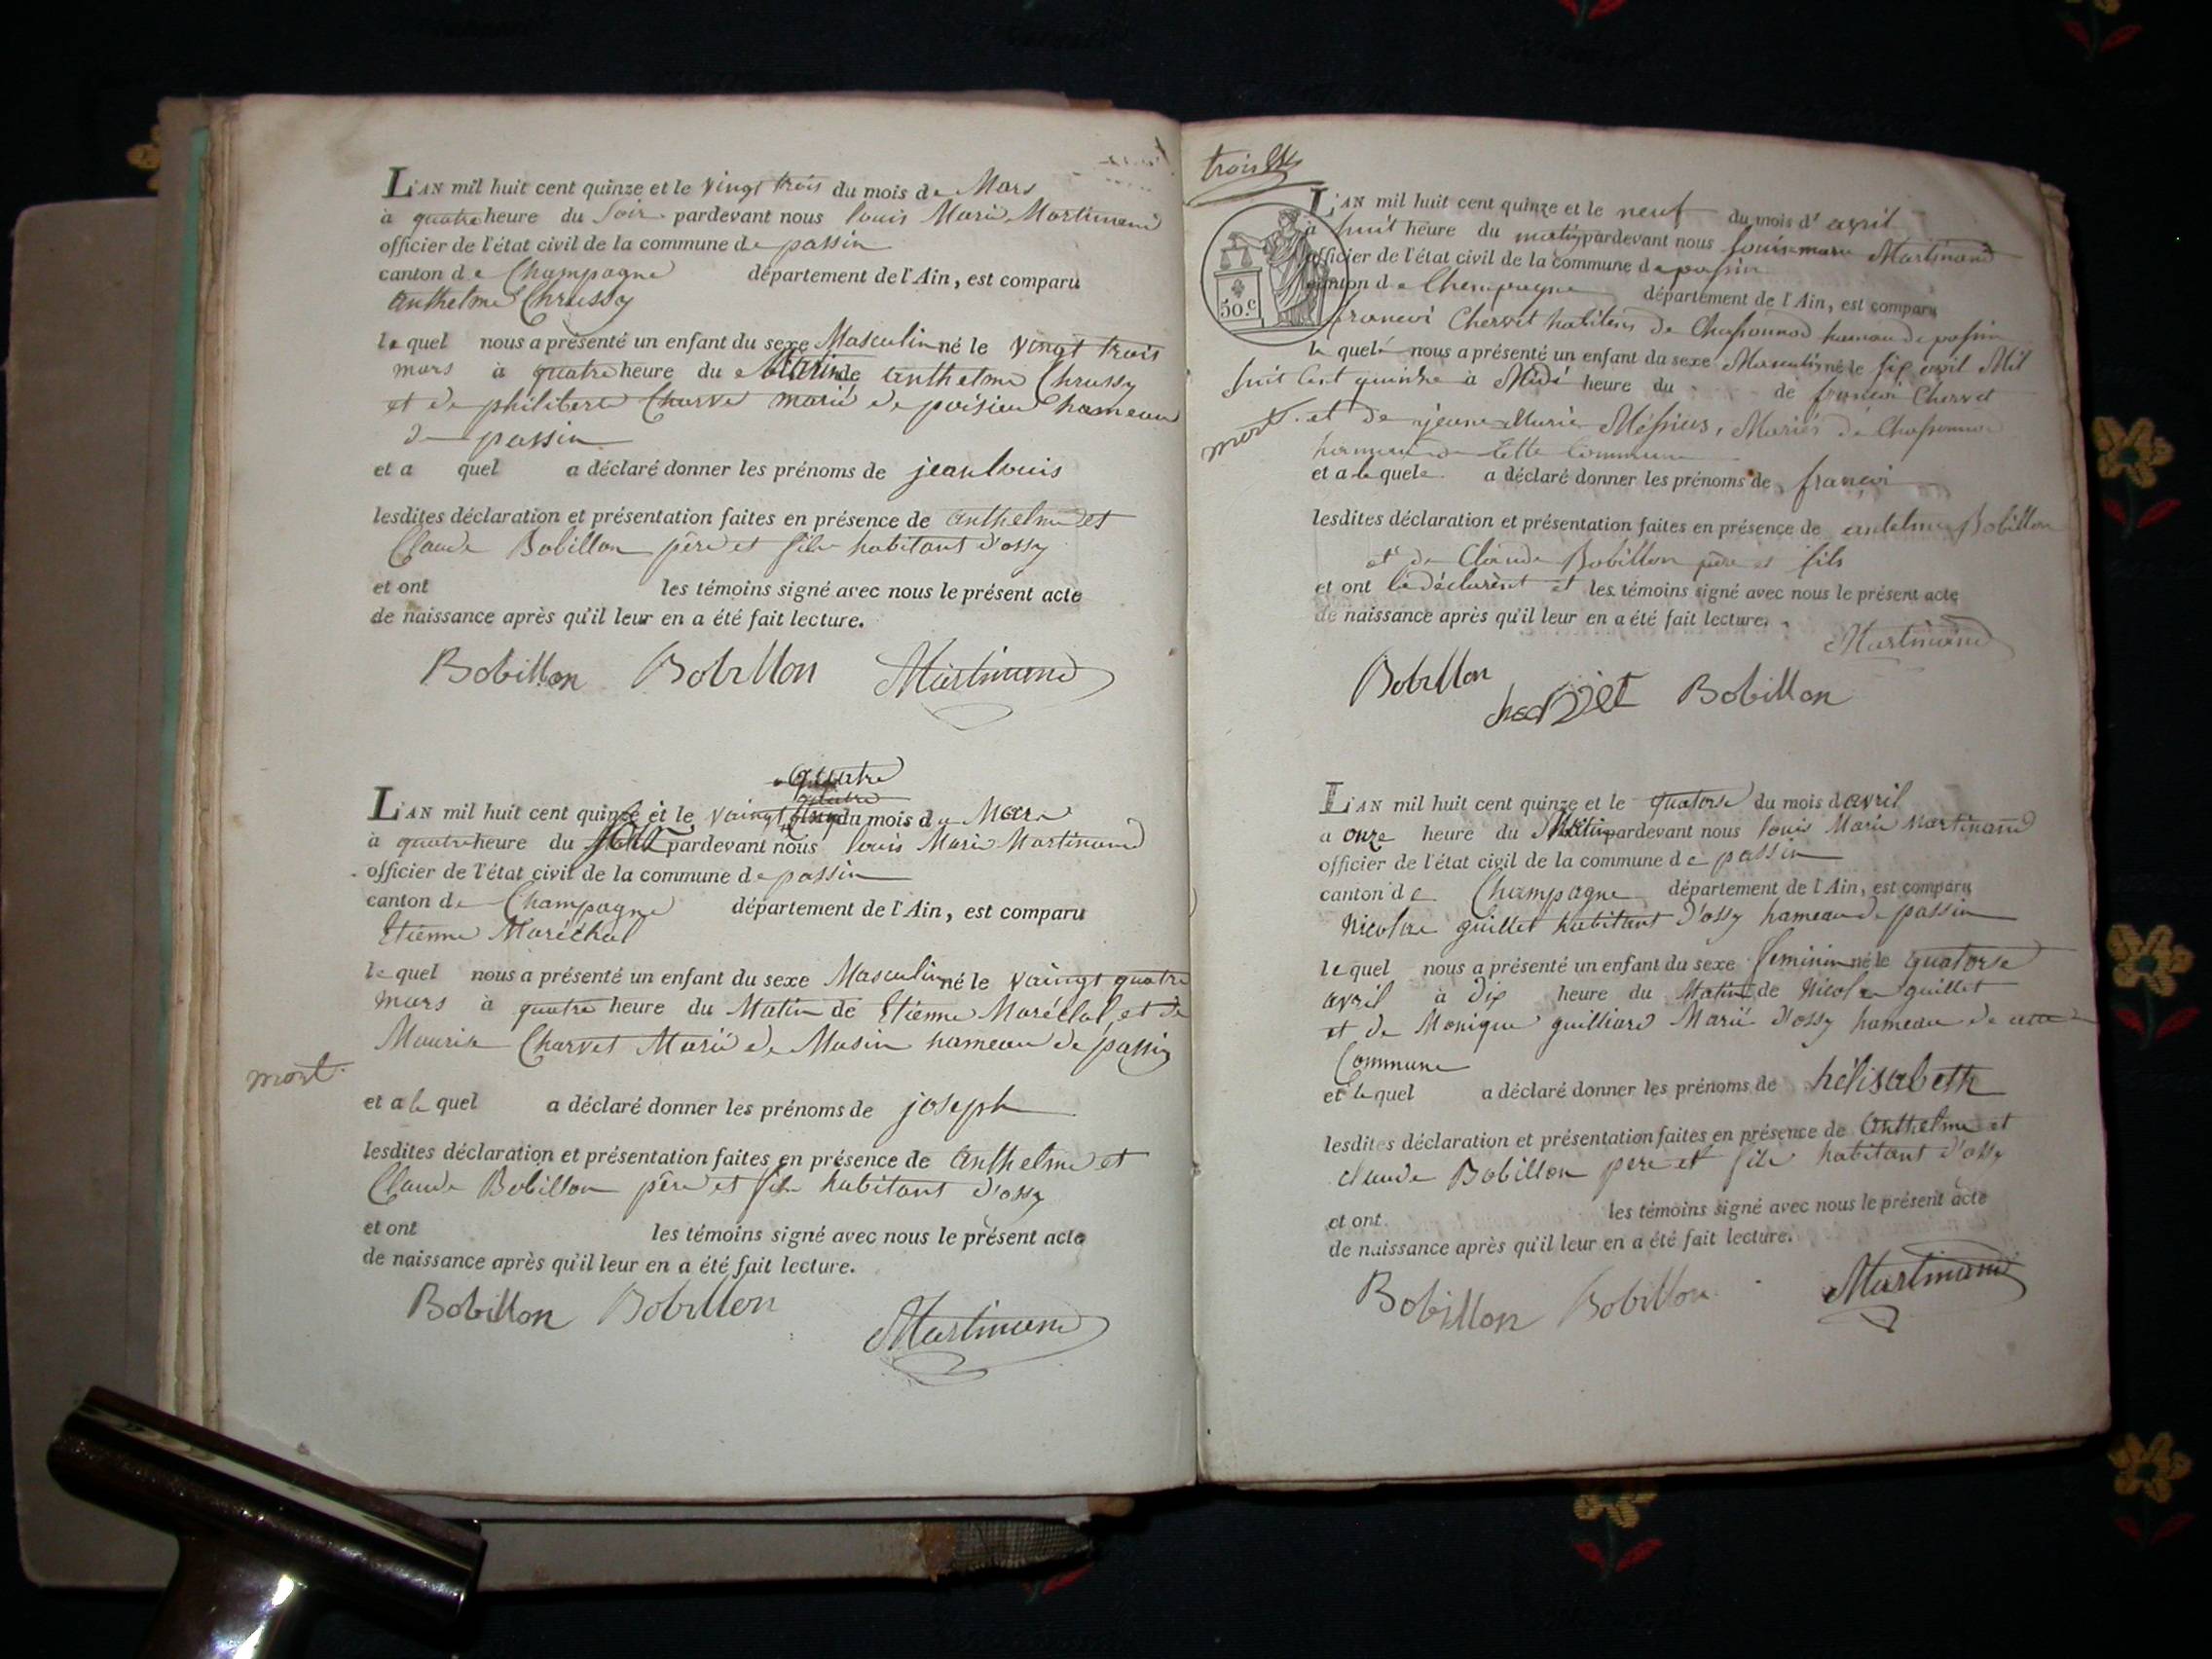 L'AN mil huit cent quinze et le vingt trois du mois de Mars
à quatre heure du Soir pardevant nous louis Marie Martinand
officier de l'état civil de la commune de passin
canton de Champagne département de l'Ain, est comparu
anthelme Chrussy
le quel nous a présenté un enfant du sexe Masculin né le vingt trois
mars à quatre heure du Matin de anthelme Chrussy
et de philiberte Charvet marié de poisieu hameau
de passin
et a quel a déclaré donner les prénoms de jean louis
lesdites déclaration et présentation faites en présence de anthelme et
Claude Bobillon père et fils habitant d'ossy
et ont les témoins signé avec nous le présent acte
de naissance après qu'il leur en a été fait lecture.
Bobillon Bobillon Martinand
quatre
L'AN mil huit cent quinze et le vaingt du mois de Mars
à quatre heure du pardevant nous louis Marie Martinand
officier de l'état civil de la commune de passin
canton de Champagne département de l'Ain, est comparu
Etienne Maréchal
le quel nous a présenté un enfant du sexe Masculin né le vaingt quatre
mars à quatre heure du Matin de Etienne Maréchal et de
Charvet Marié de Musin hameau de passin
mort
et a le quel a déclaré donner les prénoms de joseph
lesdites déclaration et présentation faites en présence de anthelme et
Claude Bobillon père et fils habitant d'ossy
et ont les témoins signé avec nous le présent acte
de naissance après qu'il leur en a été fait lecture.
Bobillon Bobillon
Martinand
trois
L'AN mil huit cent quinze et le neuf du mois d'avril
à huit heure du matin pardevant nous louis marie Martinand
officier de l'état civil de la commune de passin
canton de Champagne département de l'Ain, est comparu
50.c
francoi Chervet habitant de Chassonnod hameau de passin
le quel nous a présenté un enfant du sexe Masculin né le six avril Mil
huit Cent quinze à Midi heure du de francoi Chervet
mort
et de jeane Marie Mariés de Chassonnod
hameau de Cette Commune
et a le quele a déclaré donner les prénoms de francoi
lesdites déclaration et présentation faites en présence de antelme Bobillon
et de Claude Bobillon père et fils
et ont le déclarent et les témoins signé avec nous le présent acte
de naissance après qu'il leur en a été fait lecture.
Martinand
Bobillon chervet Bobillon
L'AN mil huit cent quinze et le quatorse du mois d'avril
a onze heure du Matin pardevant nous louis Marie Martinand
officier de l'état civil de la commune de passin
canton de Champagne département de l'Ain, est comparu
Nicolas guillet habitant d'ossy hameau de passin
le quel nous a présenté un enfant du sexe feminin né le quatorse
avril à dix heure du Matin de Nicolas guillet
et de Monique guilliard Marié d'ossy hameau de
Commune
et le quel a déclaré donner les prénoms de hélisabeth
lesdites déclaration et présentation faites en présence de Anthelme et
claude Bobillon père et fils habitant d'ossy
et ont les témoins signé avec nous le présent acte
de naissance après qu'il leur en a été fait lecture.
Bobillon Bobillon Martinand